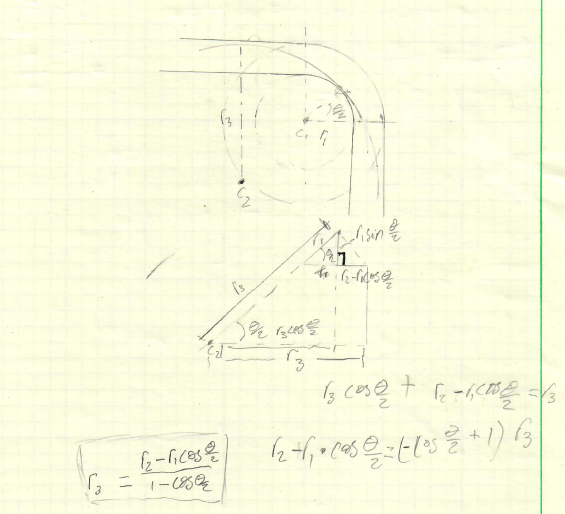 r₃
θ/2
C₁
r₁
C₂
r₁ sin θ/2
r₁
θ/2
r₂-r₁cos θ/2
r₃
θ/2 r₃cos θ/2
C₂
r₃
r₃ cos θ/2 + r₂-r₁cos θ/2 = r₃
r₂-r₁·cos θ/2 = (-cos θ/2 + 1) r₃
r₃ = (r₂-r₁cos θ/2)/(1-cos θ/2)